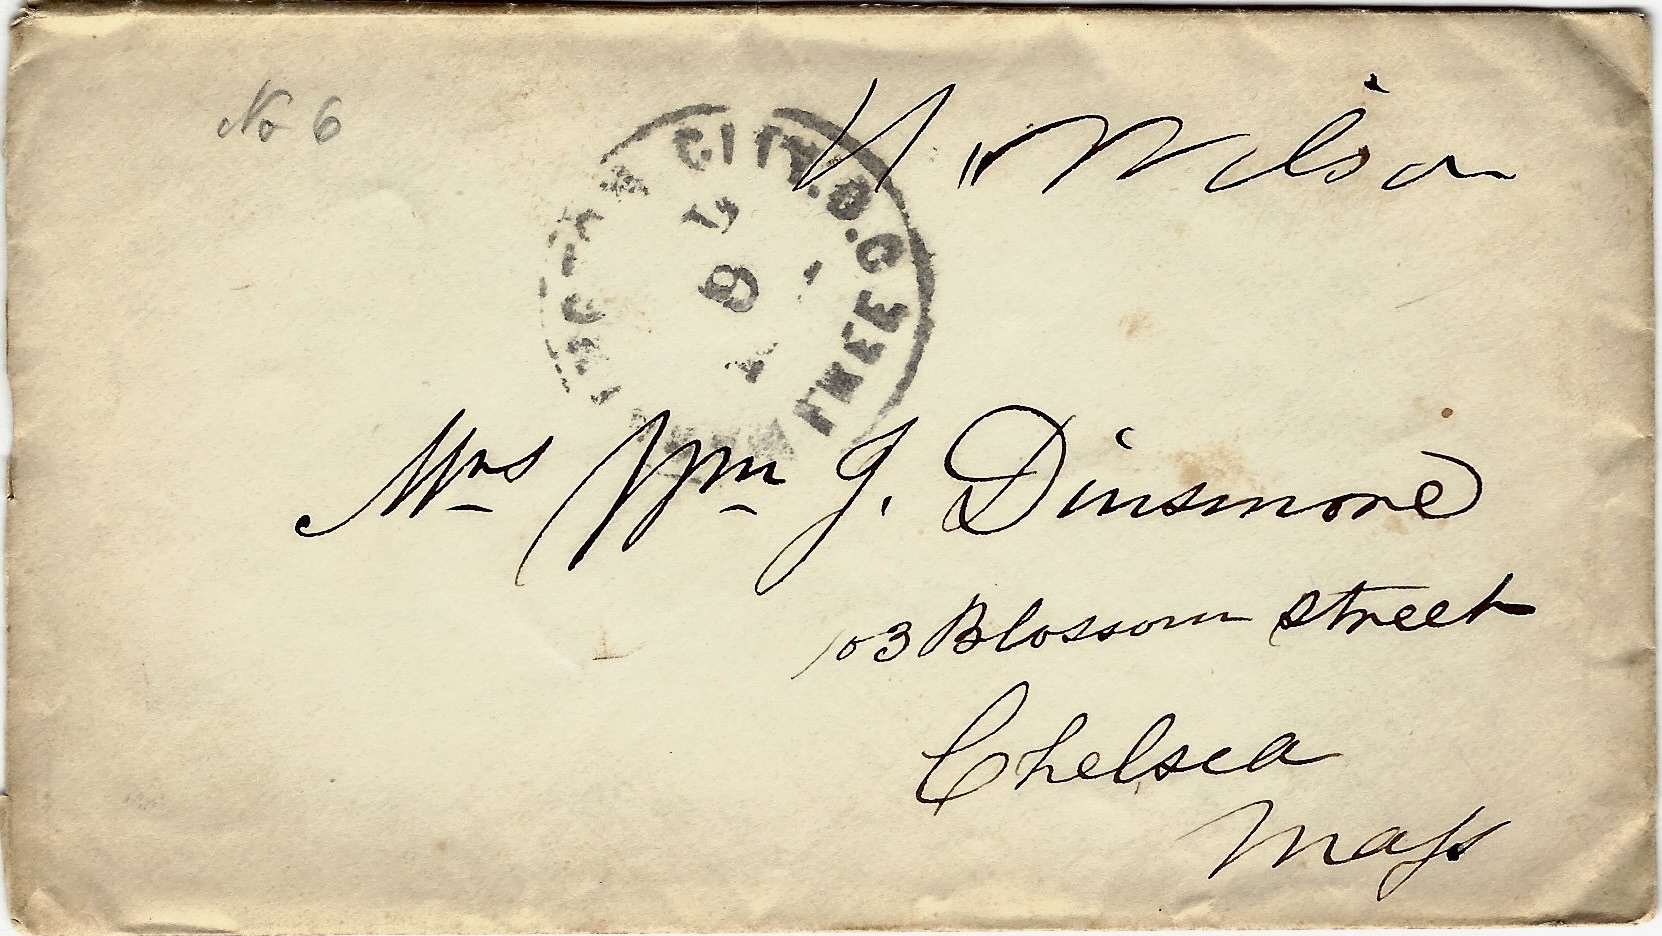 No 6
H Wilson
CITY. D.C.
FREE
Mrs Wm J. Dinsmore
103 Blossom Street
Chelsea
Mass